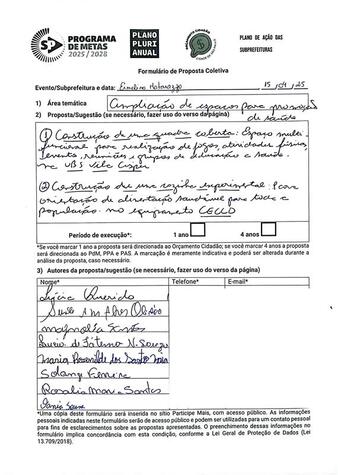 PROGRAMA
DE METAS
2025 / 2028
PLANO
PLURI
ANUAL
PLANO DE AÇÃO DAS
SUBPREFEITURAS
Formulário de Proposta Coletiva
Evento/Subprefeitura e data: Ermelino Matarazzo 15/04/25
1) Área temática Ampliação de espaços para promoção
de saúde
2) Proposta/Sugestão (se necessário, fazer uso do verso da página)
① Construção de uma quadra coberta: Espaço multi
funcional para realização de jogos, atividades físicas
eventos, reuniões e grupos de educação e saúde.
na UBS Vila Cisper
② Construção de uma cozinha experimental: Para
orientação de alimentação saudável para toda a
população. no equipamento CECCO
Período de execução*: 1 ano 4 anos
*Se você marcar 1 ano a proposta será direcionada ao Orçamento Cidadão; se você marcar 4 anos a proposta
será direcionada ao PdM, PPA e PAS. A marcação é meramente indicativa e poderá ser alterada durante a
análise da proposta, caso necessário.
3) Autores da proposta/sugestão (se necessário, fazer uso do verso da página)
Nome* Telefone* E-mail*
Querido
Alves
Santos
de Fátima N. Souza
Maria dos Santos
Solange Ferreira
Rosalia Santos
*Uma cópia deste formulário será inserida no sítio Participe Mais, com acesso público. As informações
pessoais indicadas neste formulário serão de acesso público e podem ser utilizadas para um contato pessoal
para fins de esclarecimentos sobre as propostas apresentadas. O preenchimento dessas informações no
formulário implica concordância com esta condição, conforme a Lei Geral de Proteção de Dados (Lei
13.709/2018).